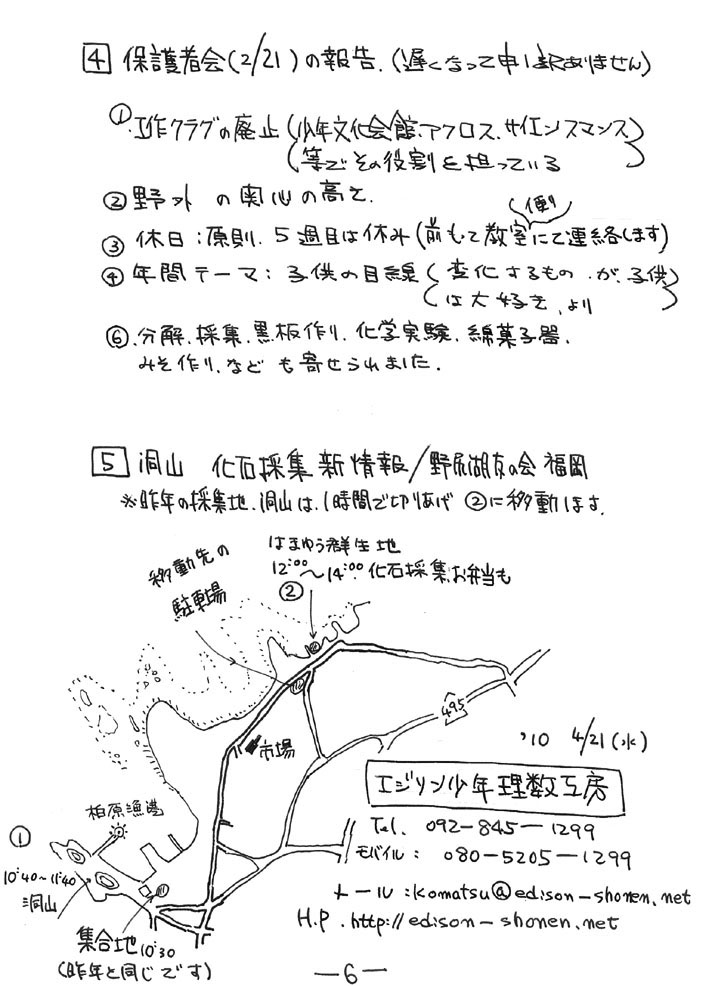 4 保護者会(2/21)の報告.(遅くなって申し訳ありません)
① 工作クラブの廃止(少年文化会館、アクロス、サイエンスマンス
等でその役割を担っている)
② 野外 の関心の高さ.
③ 休日:原則、5週目は休み(前もって教室便りにて連絡します)
④ 年間テーマ:子供の目線(変化するもの が、子供
は大好き、より)
⑥ 分解、採集、黒板作り、化学実験、綿菓子器、
みそ作り、など も寄せられました.
5 洞山 化石採集新情報/野尻湖友の会 福岡
※昨年の採集地、洞山は、1時間で切りあげ ②に移動します.
はまゆう群生地
12:00~14:00 化石採集、お弁当も
②
移動先の
駐車場
495
市場
'10 4/21(水)
エジソン少年理数工房
Tel. 092-845-1299
モバイル: 080-5205-1299
メール:komatsu@edison-shonen.net
H.P. http://edison-shonen.net
柏原漁港
①
10:40~11:40
洞山
集合地10:30
(昨年と同じです)
-6-